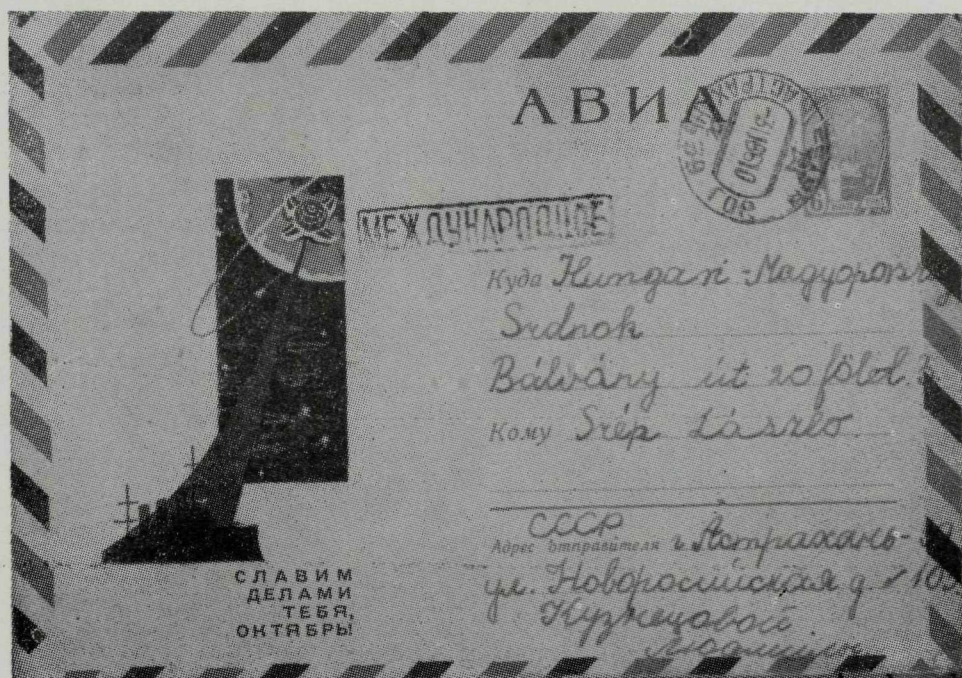 АВИА
МЕЖДУНАРОДНОЕ
Куда Hungari -Magyarország
Srdnok
Bálvány út 20 földl.
Кому Szép László
СССР
Адрес отправителя г. Астрахань-
ул. Новоросийская д. 103
Кузнецовой
Людмилы
СЛАВИМ
ДЕЛАМИ
ТЕБЯ,
ОКТЯБРЬ!